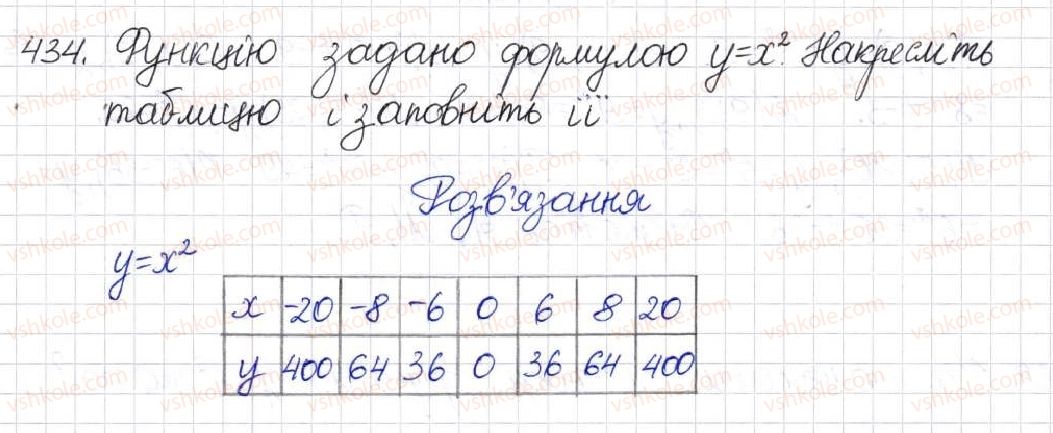 434. Функцію задано формулою y=x². Накресліть
таблицю і заповніть її
Розв'язання
y=x²
x -20 -8 -6 0 6 8 20
y 400 64 36 0 36 64 400
vshkole.com